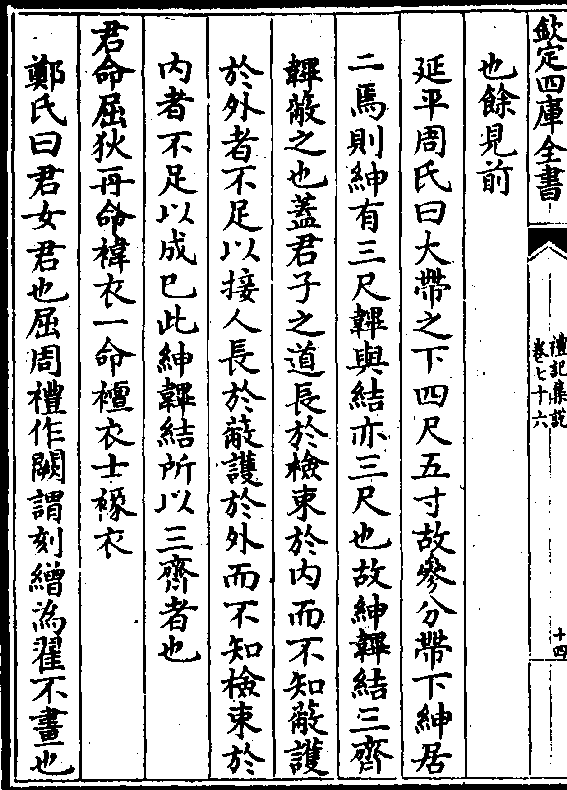 欽定四庫全書
禮記集說
卷七十六
十四
也餘見前
延平周氏曰大帶之下四尺五寸故參分帶下紳居
二焉則紳有三尺韠與結亦三尺也故紳韠結三齊
韠蔽之也蓋君子之道長於檢束於内而不知蔽護
於外者不足以接人長於蔽護於外而不知檢束於
内者不足以成已此紳韠結所以三齊者也
君命屈狄再命褘衣一命襢衣士褖衣
鄭氏曰君女君也屈周禮作闕謂刻繒為翟不畫也